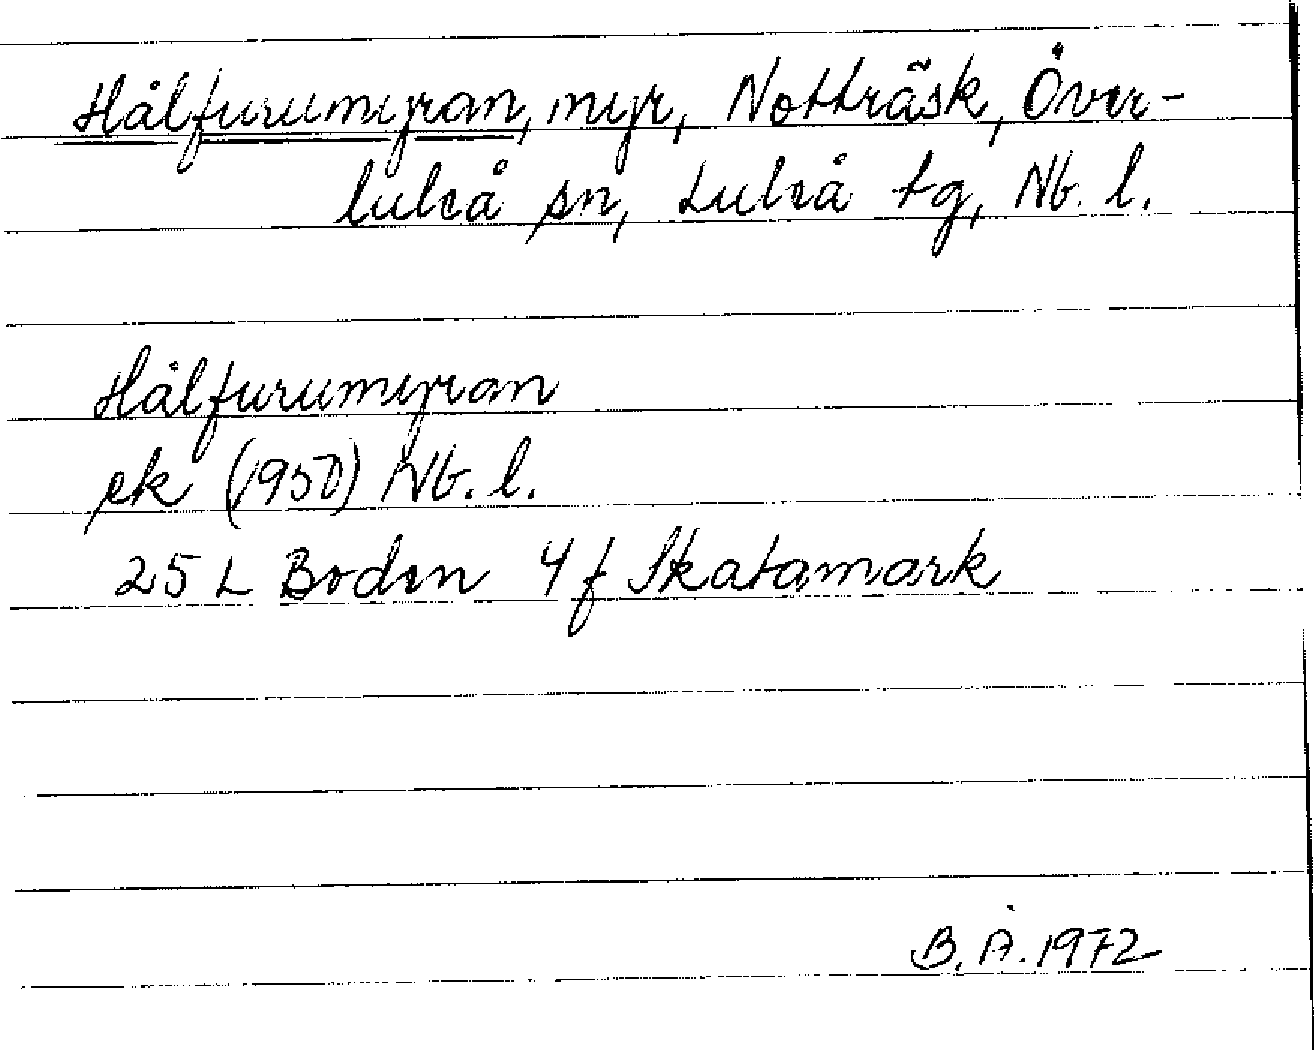 Hålfurumyran, myr, Notträsk, Över-
luleå sn, Luleå tg, Nb. l.
Hålfurumyran
ek (1950) Nb. l.
25 L Boden 4 f Skatamark
B. Å. 1972